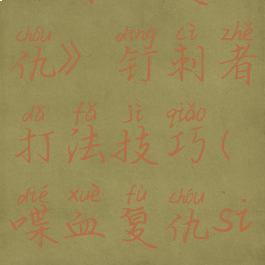 chóu dīng cì zhě
仇》 钉刺者
dǎ fǎ jì qiǎo
打法技巧(
dié xuè fù chóu
喋血复仇si